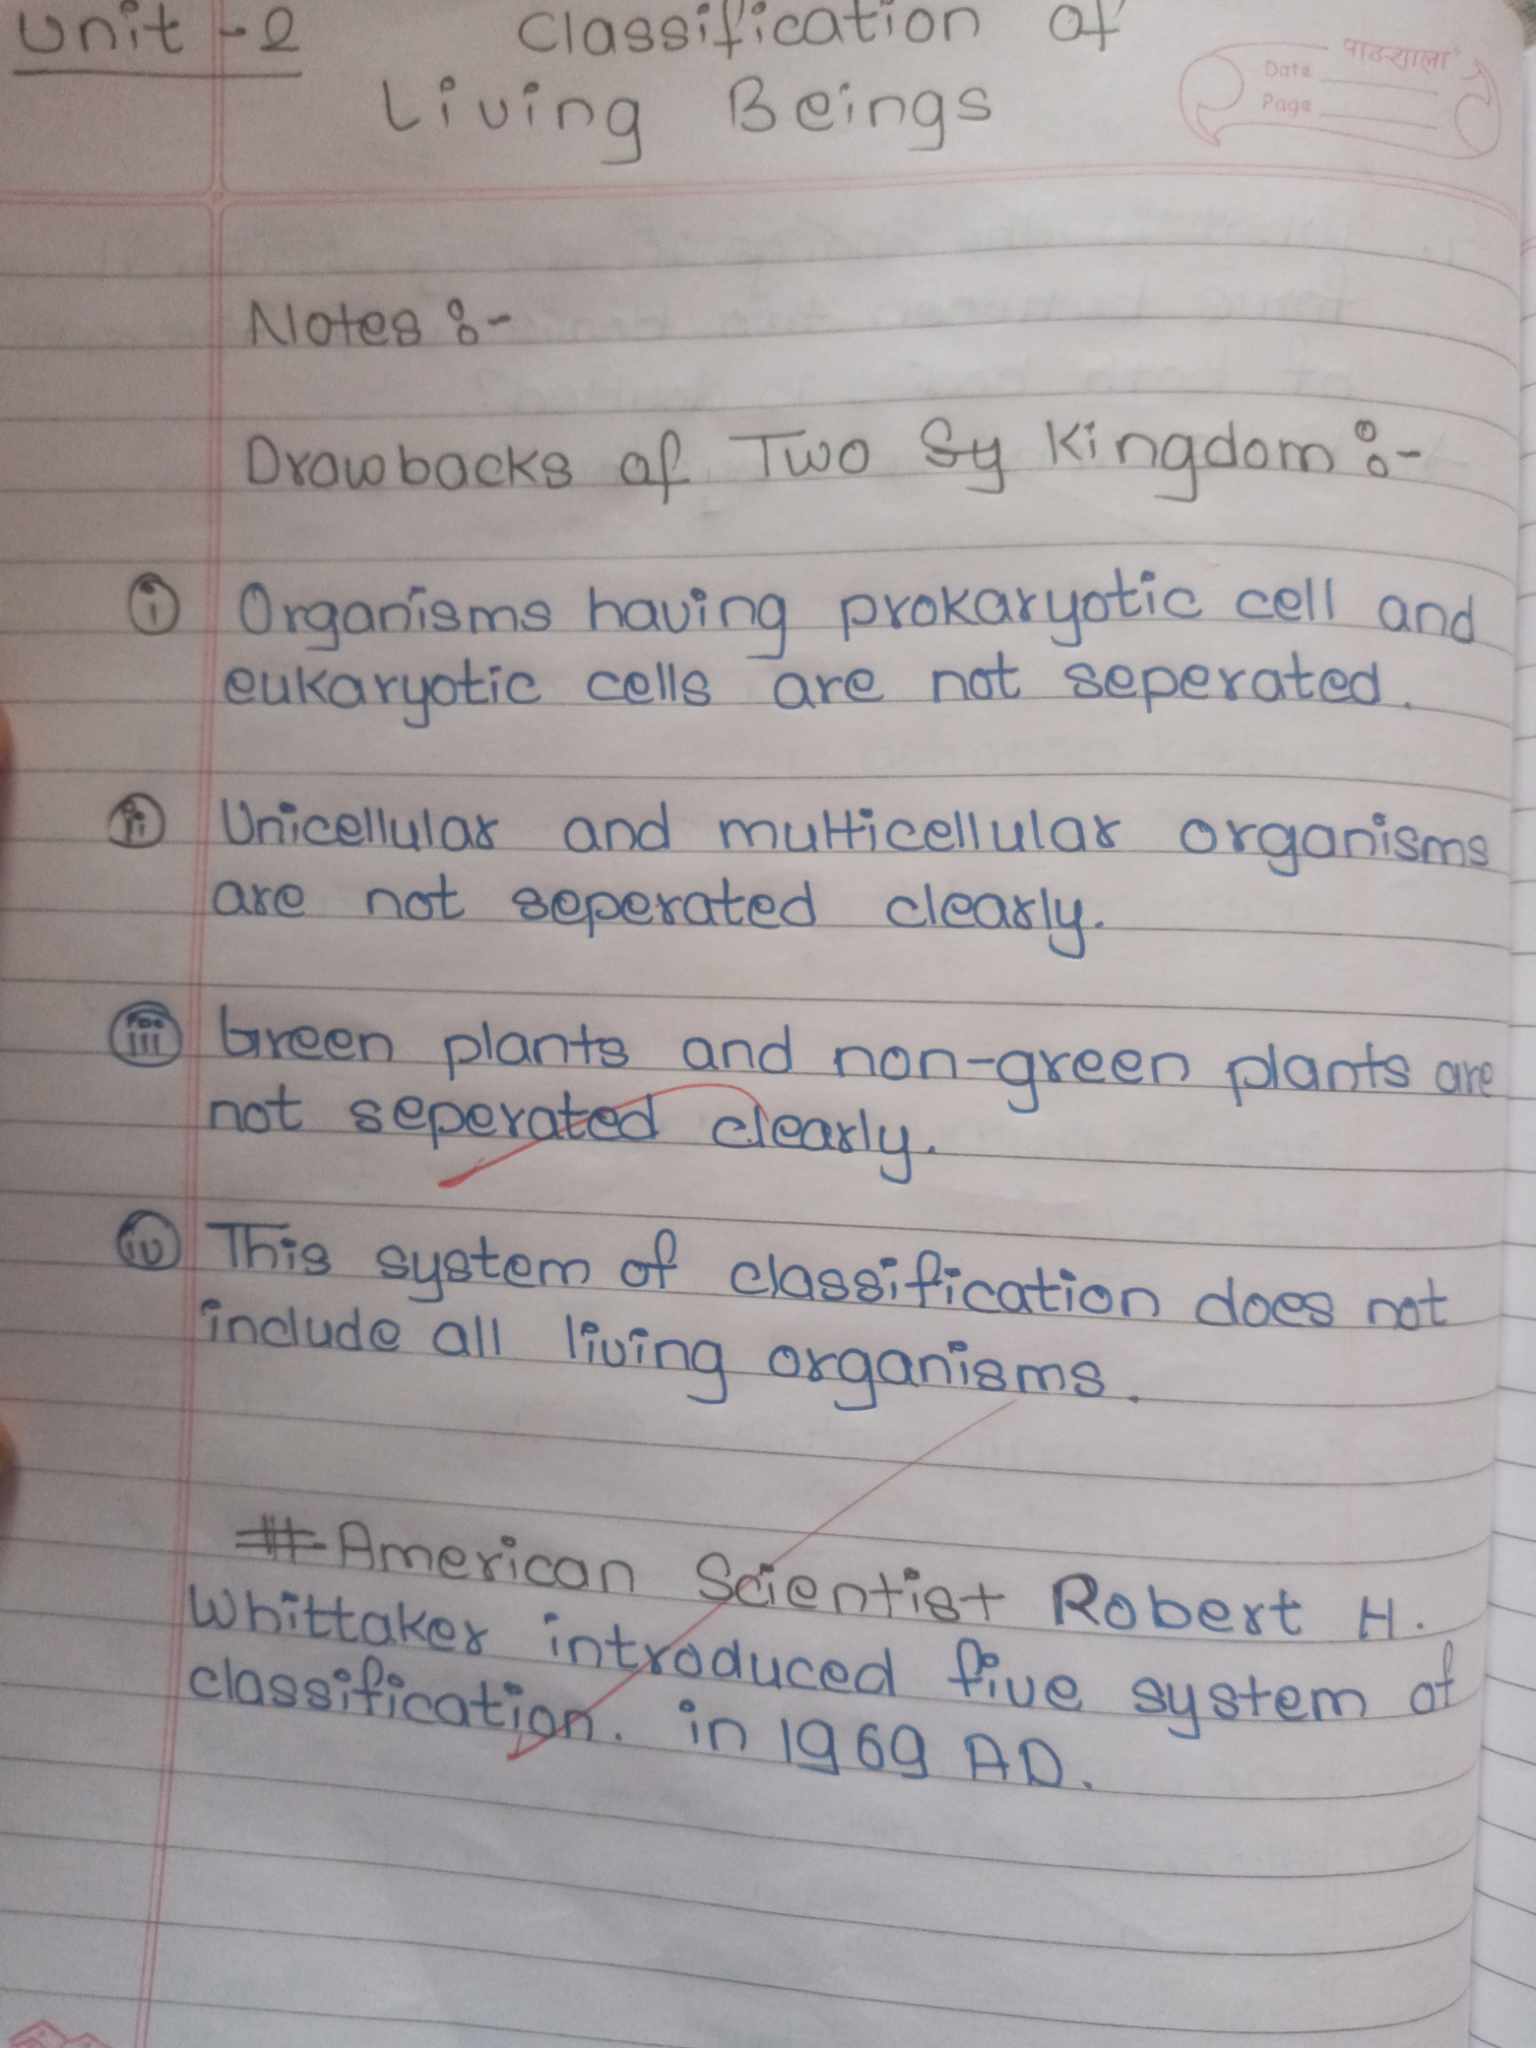 Unit - 2 Classification of
Living Beings
पाठशाला
Date
Page
Notes :-
Drawbacks of Two Sy Kingdom :-
(i) Organisms having prokaryotic cell and
eukaryotic cells are not seperated.
(ii) Unicellular and multicellular organisms
are not seperated clearly.
(iii) Green plants and non-green plants are
not seperated clearly.
(iv) This system of classification does not
include all living organisms.
# American Scientist Robert H.
Whittaker introduced five system of
classification. in 1969 AD.